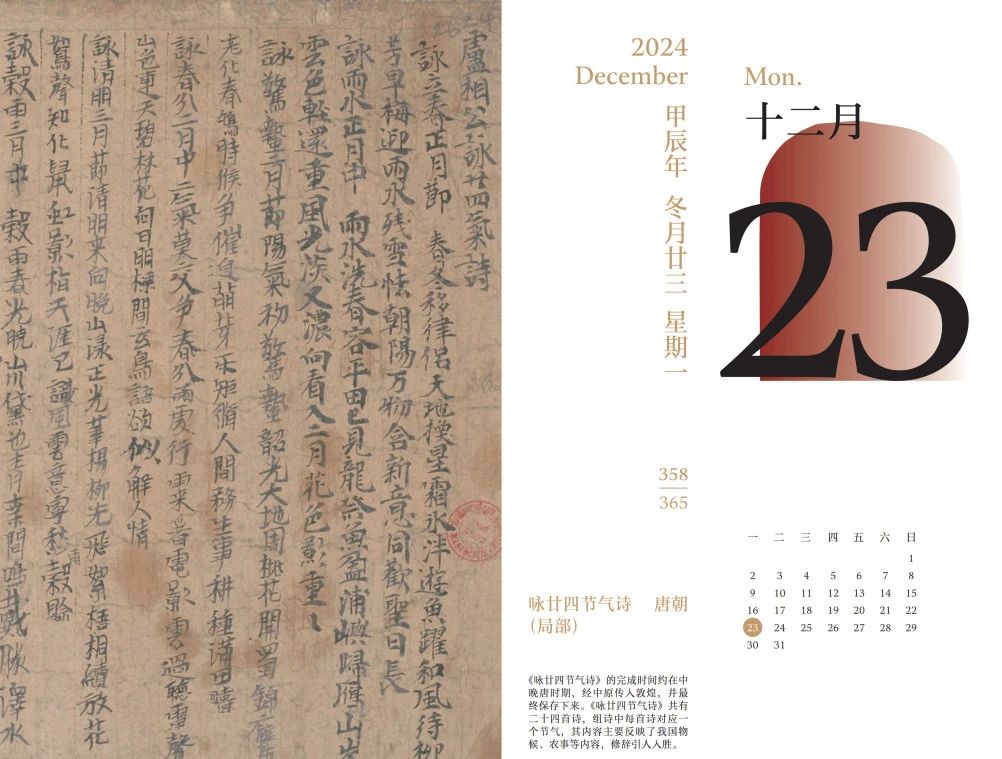 盧相公詠廿四氣詩
詠立春正月節 春冬移律侶天地換星霜氷泮遊魚躍和風待柳
芳早梅迎雨水残雪怯朝陽万物含新意同歡聖日長
詠雨水正月中 雨水洗春容平田已見龍祭魚盈浦嶼歸雁山
雲色輕還重風光淡又濃向看入二月花色影重〻
詠驚蟄二月節陽氣初驚蟄韶光大地周桃花開蜀錦鷹
老化春鳩時候爭催迫萌芽矩脩人間務生事耕種滿田疇
詠春分二月中 二氣莫交爭春分雨處行雨來看電影雲過聽雷聲
山色連天碧林花向日明樑間玄鳥語欲似解人情
詠清明三月節清明來向晚山淥正光華楊柳先飛絮梧桐續放花
鴽聲知化鼠虹影指天涯已識風雲意寧愁穀雨賒
詠穀雨三月中 穀雨春光曉山川黛色青桑間鳴戴勝澤水
2024
December
Mon.
甲辰年 冬月廿三 星期一
十二月
23
358
365
一 二 三 四 五 六 日
1
2 3 4 5 6 7 8
9 10 11 12 13 14 15
16 17 18 19 20 21 22
23 24 25 26 27 28 29
30 31
咏廿四节气诗 唐朝
（局部）
《咏廿四节气诗》的完成时间约在中
晚唐时期，经中原传入敦煌，并最
终保存下来。《咏廿四节气诗》共有
二十四首诗，组诗中每首诗对应一
个节气，其内容主要反映了我国物
候、农事等内容，修辞引人入胜。